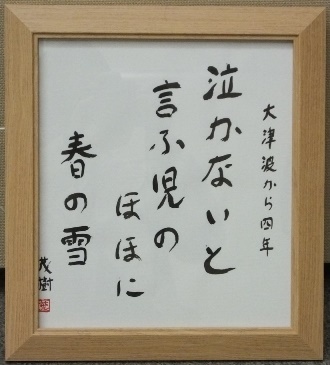 大津波から四年
泣かないと
言ふ児の
ほほに
春の雪
茂樹